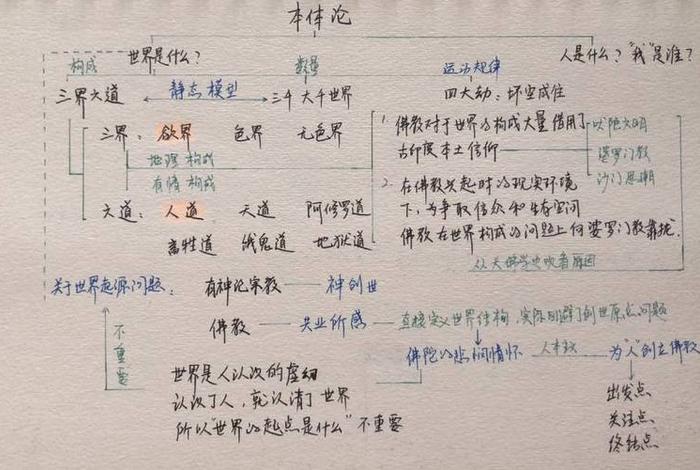 本体论
世界是什么？
人是什么？"我"是谁？
构成
数量
运动规律
三界六道
静态模型
三千大千世界
四大劫：坏空成住
三界：欲界 色界 无色界
地理构成
有情构成
六道：人道 天道 阿修罗道
畜牲道 饿鬼道 地狱道
1. 佛教对于世界的构成大量借用了
古印度本土信仰
吠陀文明
婆罗门教
沙门思潮
2. 在佛教兴起时的现实环境
下，为争取信众和生存空间
佛教在世界构成的问题上向婆罗门教靠拢.
关于世界起源问题：
有神论宗教 神创世
佛教 共业所感
直接定义世界结构，实际回避了创世原点问题
不重要
佛陀的悲悯情怀
人本教
为"人"创立佛教
出发点
关注点
终结点
世界是人认次的虚幻
认次了人，就认清了世界
所以"世界的起点是什么"不重要